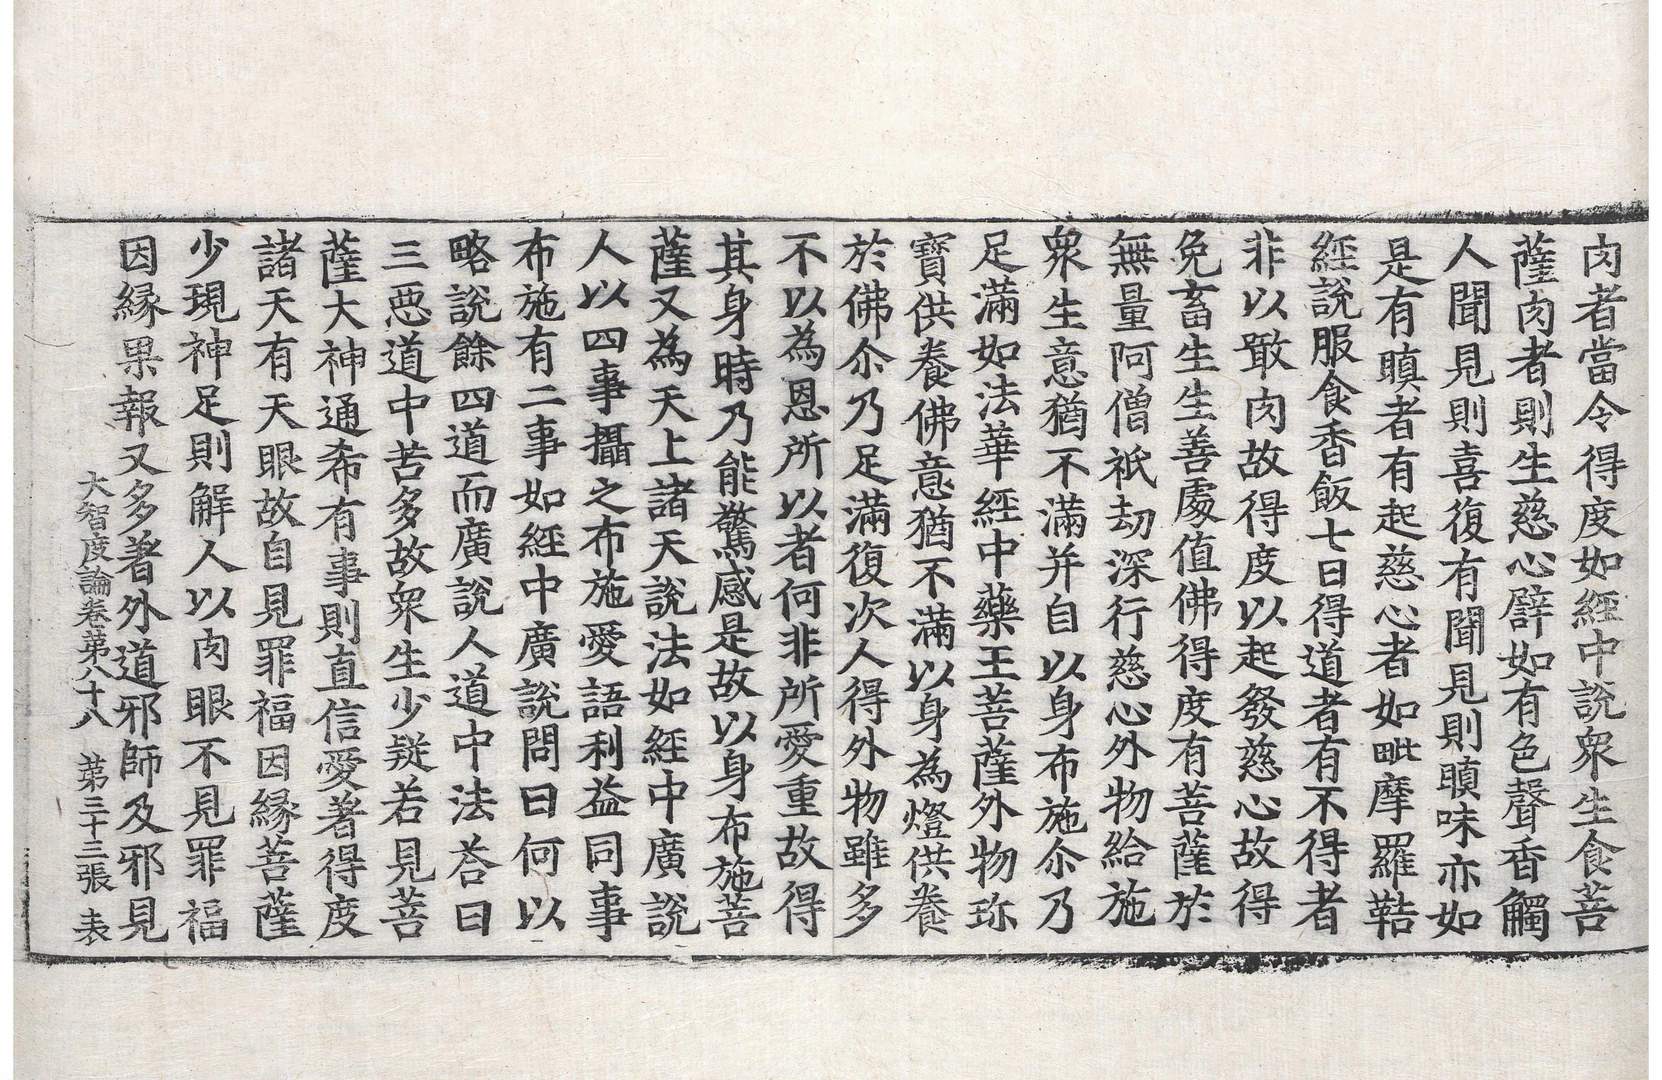 肉者當令得度如經中說衆生食菩
薩肉者則生慈心譬如有色聲香觸
人聞見則喜復有聞見則瞋味亦如
是有瞋者有起慈心者如毗摩羅鞊
經說服食香飯七日得道者有不得者
非以噉肉故得度以起發慈心故得
免畜生生善處值佛得度有菩薩於
無量阿僧祇劫深行慈心外物給施
衆生意猶不滿并自以身布施尒乃
足滿如法華經中藥王菩薩外物珎
寶供養佛意猶不滿以身為燈供養
於佛尒乃足滿復次人得外物雖多
不以為恩所以者何非所愛重故得
其身時乃能驚感是故以身布施菩
薩又為天上諸天說法如經中廣說
人以四事攝之布施愛語利益同事
布施有二事如經中廣說問曰何以
略說餘四道而廣說人道中法荅曰
三惡道中苦多故衆生少疑若見菩
薩大神通希有事則直信愛著得度
諸天有天眼故自見罪福因緣菩薩
少現神足則解人以肉眼不見罪福
因緣果報又多著外道邪師及邪見
大智度論卷第八十八 第三十三張 表